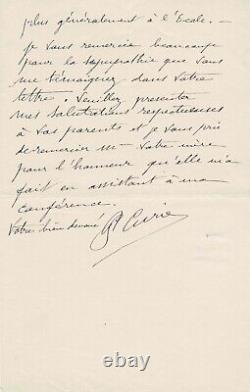 plus généralement à l'Ecole. —
Je vous remercie beaucoup
pour la sympathie que vous
me témoignez dans votre
lettre. Veuillez presenter
mes salutations respectueuses
à vos parents et je vous prie
de remercier Mme votre mère
pour l'honneur qu'elle m'a
fait en assistant à ma
conférence.
Votre bien dévoué P Curie
© ebay.com